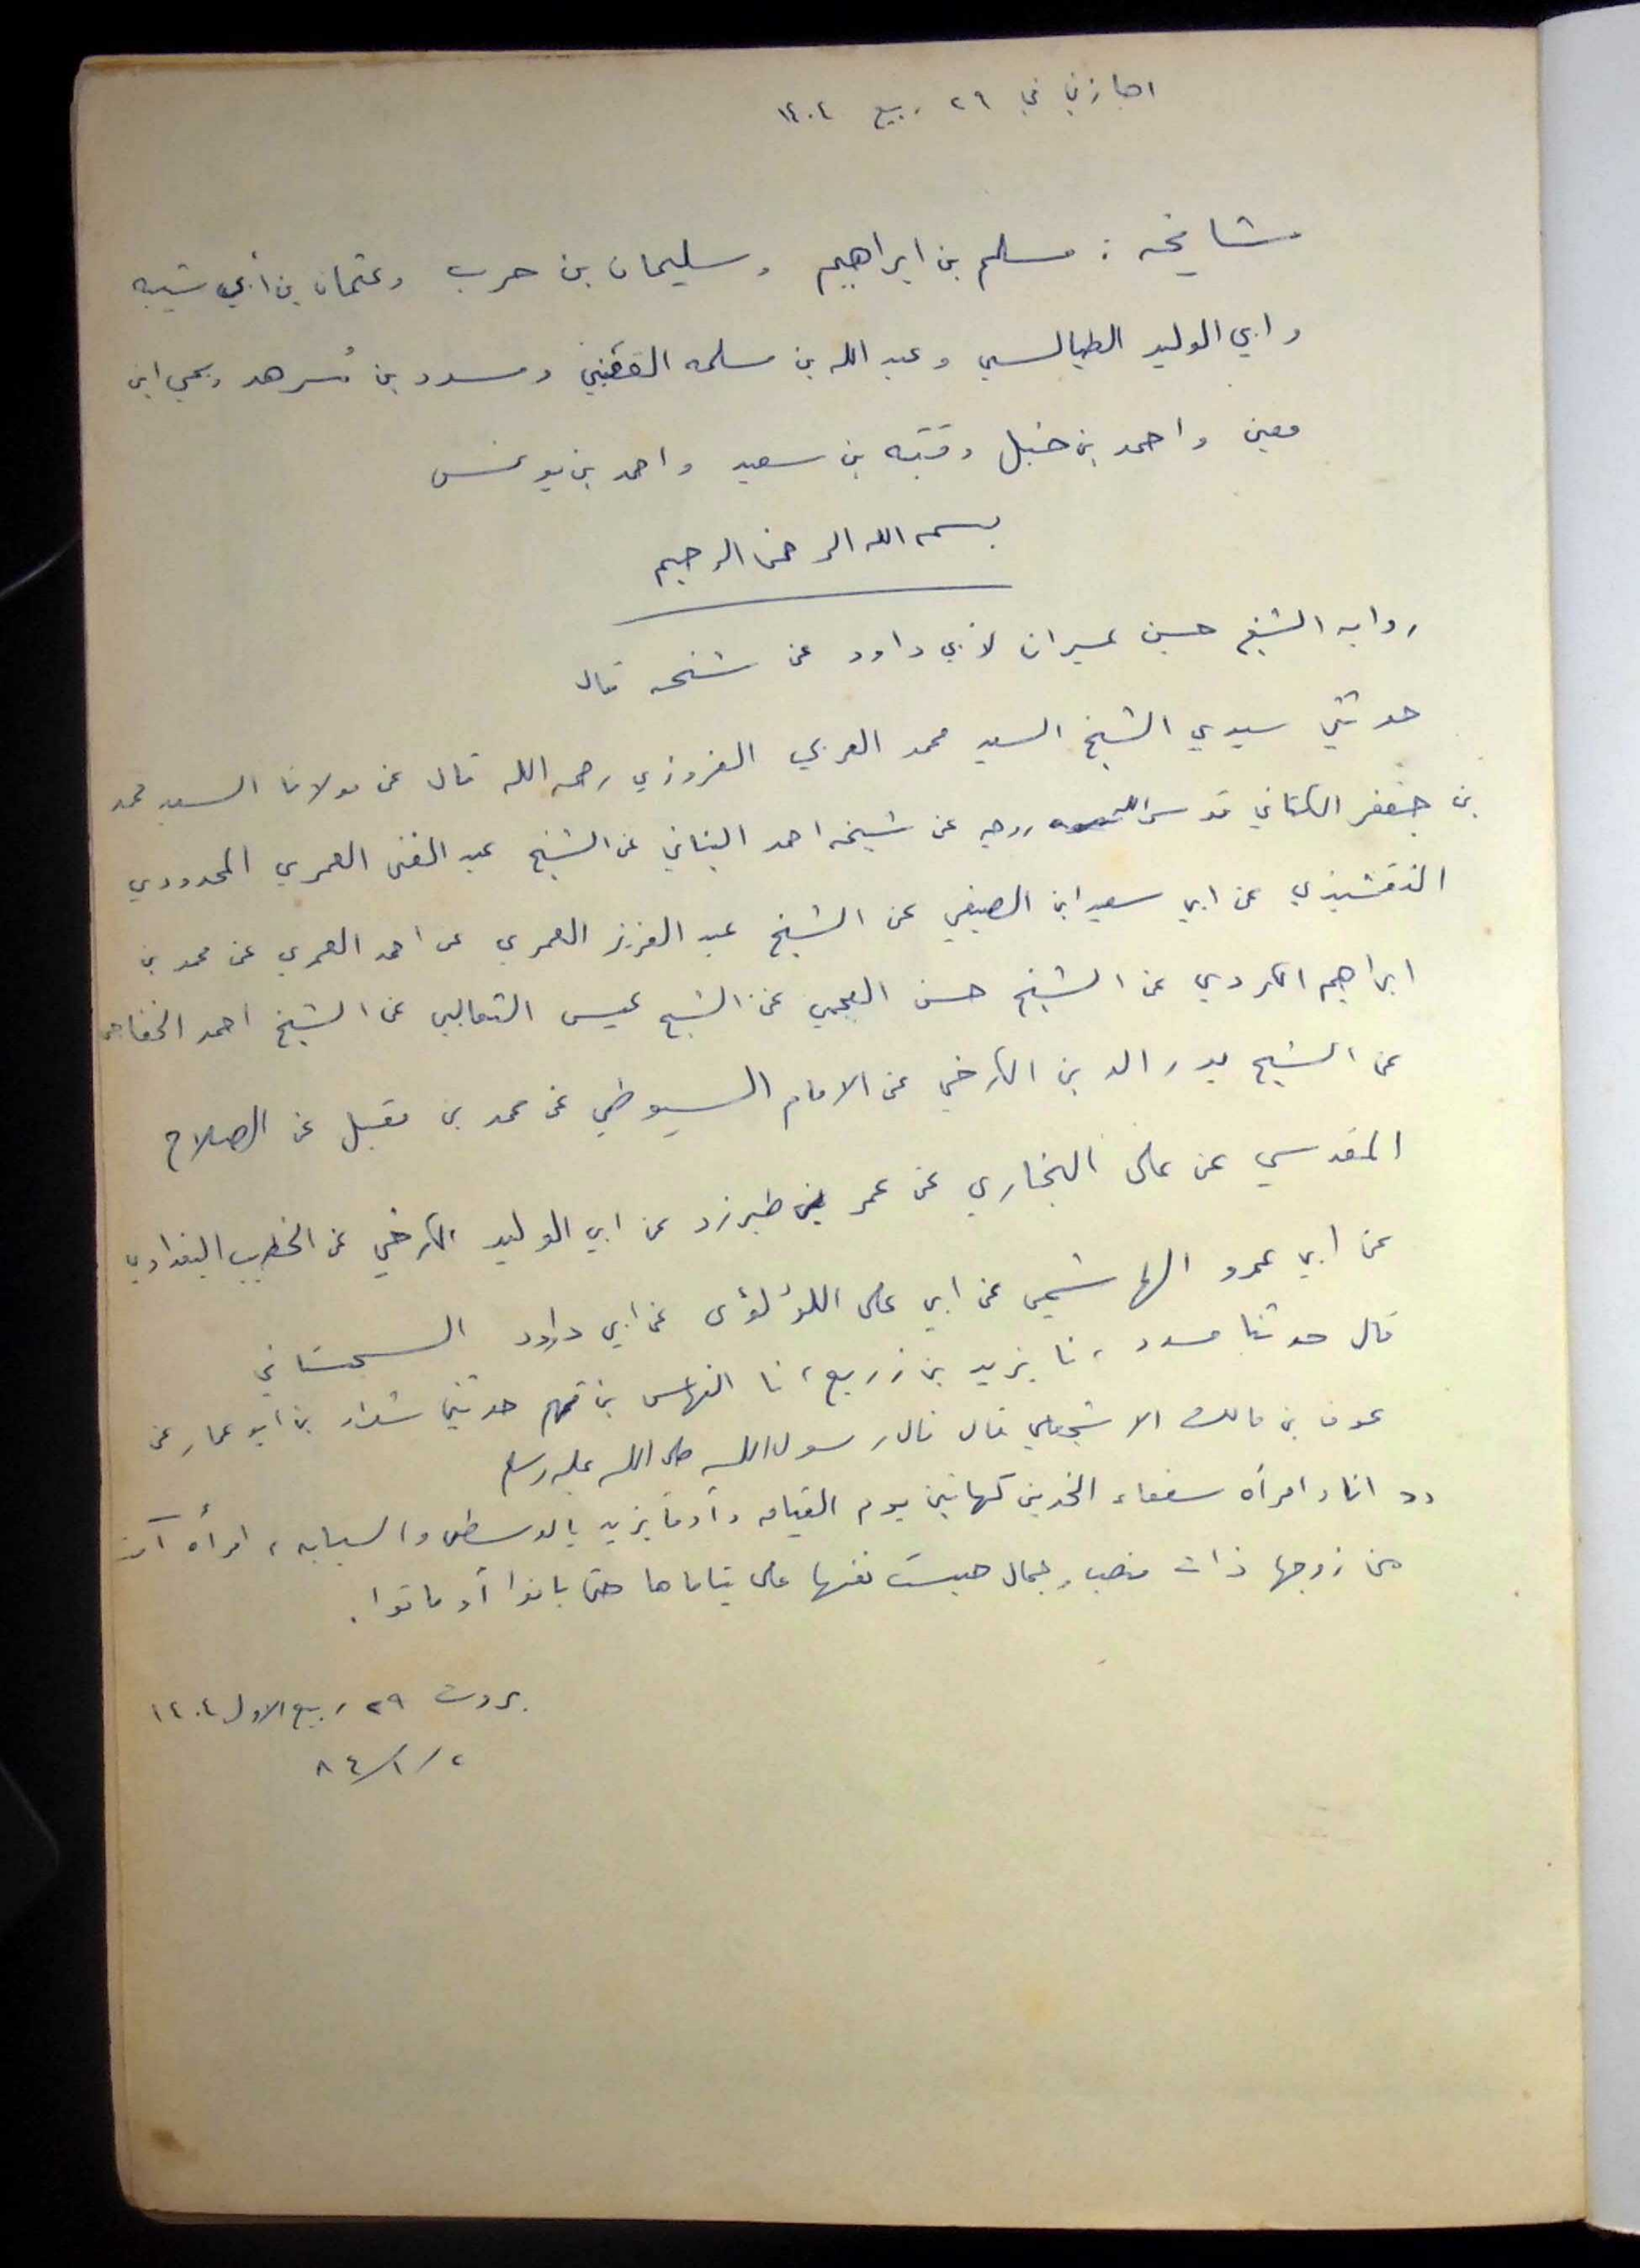 اجازني في ٢٩ ربيع ١٤٠٤
مشايخه : مسلم بن ابراهيم وسليمان بن حرب وعثمان بن أبي شيبه
وابي الوليد الطيالسي وعبد الله بن مسلمه القعنبي ومسدد بن مُسرهد ويحي ابن
معين واحمد بن حنبل وقتيبه بن سعيد واحمد بن يونس
بسم الله الرحمن الرحيم
روايه الشيخ حسين عسيران لأبي داود عن شيخه قال
حدثني سيدي الشيخ السيد محمد العربي العزوزي رحمه الله قال عن مولانا السيد محمد
بن جعفر الكتاني قدس الله روحه عن شيخه احمد البناني عن الشيخ عبد الغني العمري المجددي
النقشبندي عن ابي سعيد ابن الصيفي عن الشيخ عبد العزيز العمري عن احمد العمري عن محمد بن
ابراهيم الكردي عن الشيخ حسن العجمي عن الشيخ عيسى الثعالبي عن الشيخ احمد الخفاجي
عن الشيخ بدر الدين الكرخي عن الامام السيوطي عن محمد بن مقبل عن الصلاح
المقدسي عن على البخاري عن عمر بن طبرزد عن ابي الوليد الكرخي عن الخطيب البغدادي
عن ابي عمرو الهاشمي عن ابي على اللؤلؤى عن ابي داود السجستاني
قال حدثنا مسدد ، نا يزيد بن زريع ، نا النهاس بن قهم حدثني شداد بن ابو عمار عن
عوف بن مالك الاشجعي قال قال رسول الله صلى الله عليه وسلم
(( انا وامرأه سفعاء الخدين كهاتين يوم القيامه وأومأ يزيد بالوسطى والسبابه ، امرأه آمت
من زوجها ذات منصب وجمال حبست نفسها على يتاماها حتى بانوا أو ماتوا .
بيروت ٢٩ ربيع الاول ١٤٠٤
٢ / ١ / ٨٤